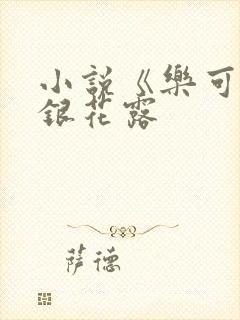 小說《樂可
銀花露
薩德